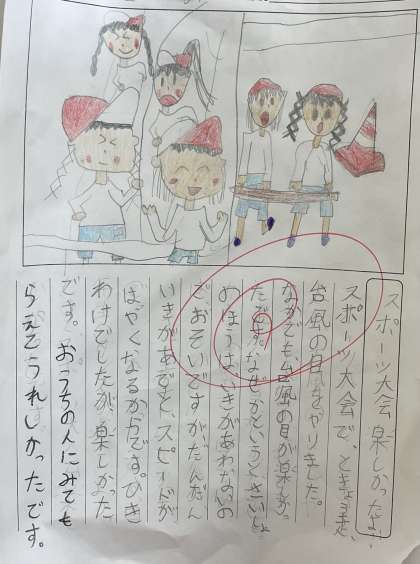 スポーツ大会楽しかったよ
スポーツ大会で、ときょう走、
台風の目をやりました。
なかでも、台風の目が楽しかっ
たです。なぜかというと、さいしょ
のほうは、いきがあわないの
でおそいですが、だんだん
いきがあうと、スピードが
はやくなるからです。ひき
わけでしたが、楽しかった
です。おうちの人にみても
らえてうれしかったです。